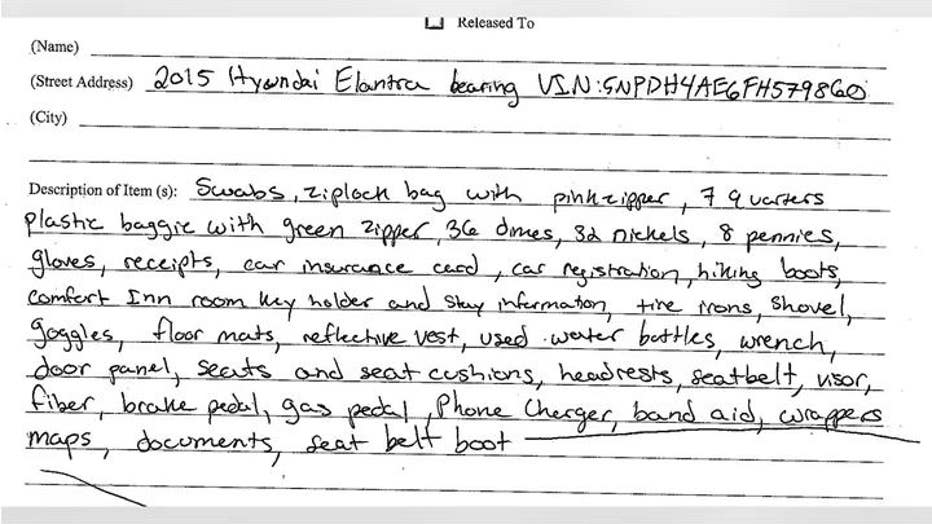 Released To
(Name)
(Street Address) 2015 Hyundai Elantra bearing VIN:5NPDH4AE6FH579860
(City)
Description of Item (s): Swabs, ziplock bag with pink zipper, 7 quarters
plastic baggie with green zipper, 36 dimes, 32 nickels, 8 pennies,
gloves, receipts, car insurance card, car registration, hiking boots,
Comfort Inn room key holder and stay information, tire irons, shovel,
goggles, floor mats, reflective vest, used water bottles, wrench,
door panel, seats and seat cushions, headrests, seatbelt, visor,
fiber, brake pedal, gas pedal, Phone Charger, band aid, wrappers
maps, documents, seat belt boot